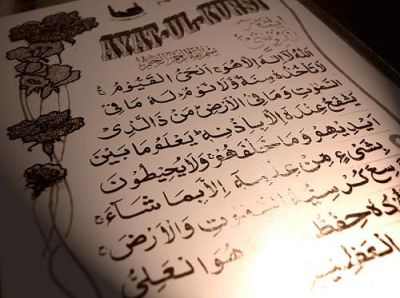 AYAT-UL-KURSI
بسم الله الرحمن الرحيم
اَللهُ لَا اِلٰهَ اِلَّا هُوَ اَلْحَىُّ الْقَيُّوْمُ
لَا تَاْخُذُهٗ سِنَةٌ وَّلَا نَوْمٌ لَهٗ مَا فِى
السَّمٰوٰتِ وَمَا فِى الْاَرْضِ مَنْ ذَا الَّذِىْ
يَشْفَعُ عِنْدَهٗ اِلَّا بِاِذْنِهٖ يَعْلَمُ مَا بَيْنَ
اَيْدِيْهِمْ وَمَا خَلْفَهُمْ وَلَا يُحِيْطُوْنَ
بِشَىْءٍ مِّنْ عِلْمِهٖ اِلَّا بِمَا شَآءَ
سِعَ كُرْسِيُّهُ السَّمٰوٰتِ وَالْاَرْضَ
هُوَ الْعَلِىُّ
الْعَظِيْمُ